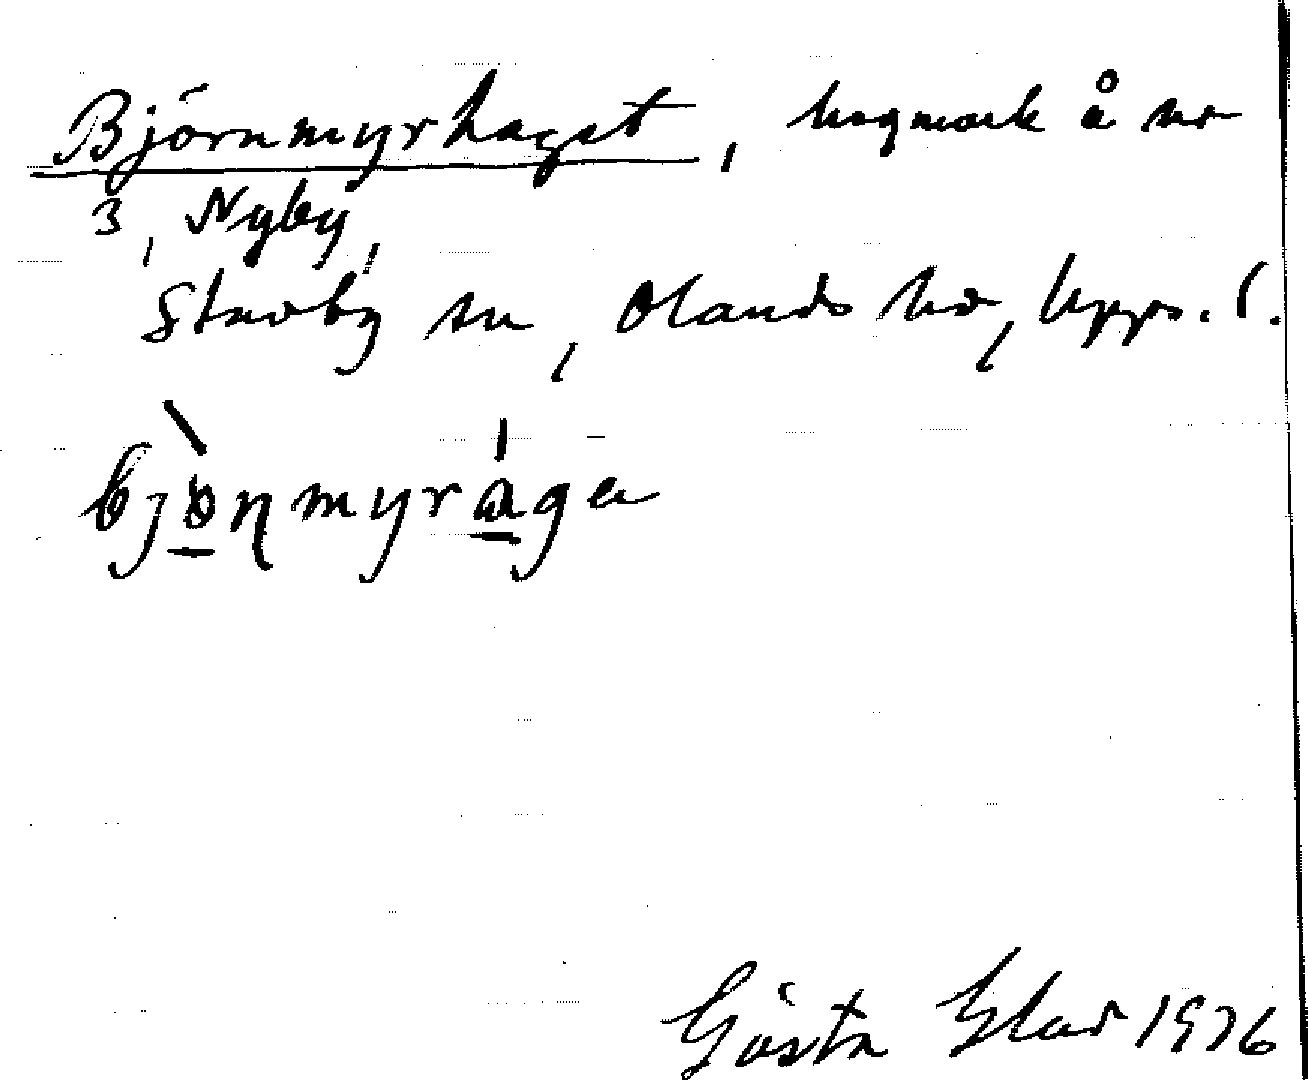 Björnmyrhaget, hagmark å nr
3, Nyby,
Stavby sn, Olands hd, Upps. l.
bjönmyraga
Gösta 1936